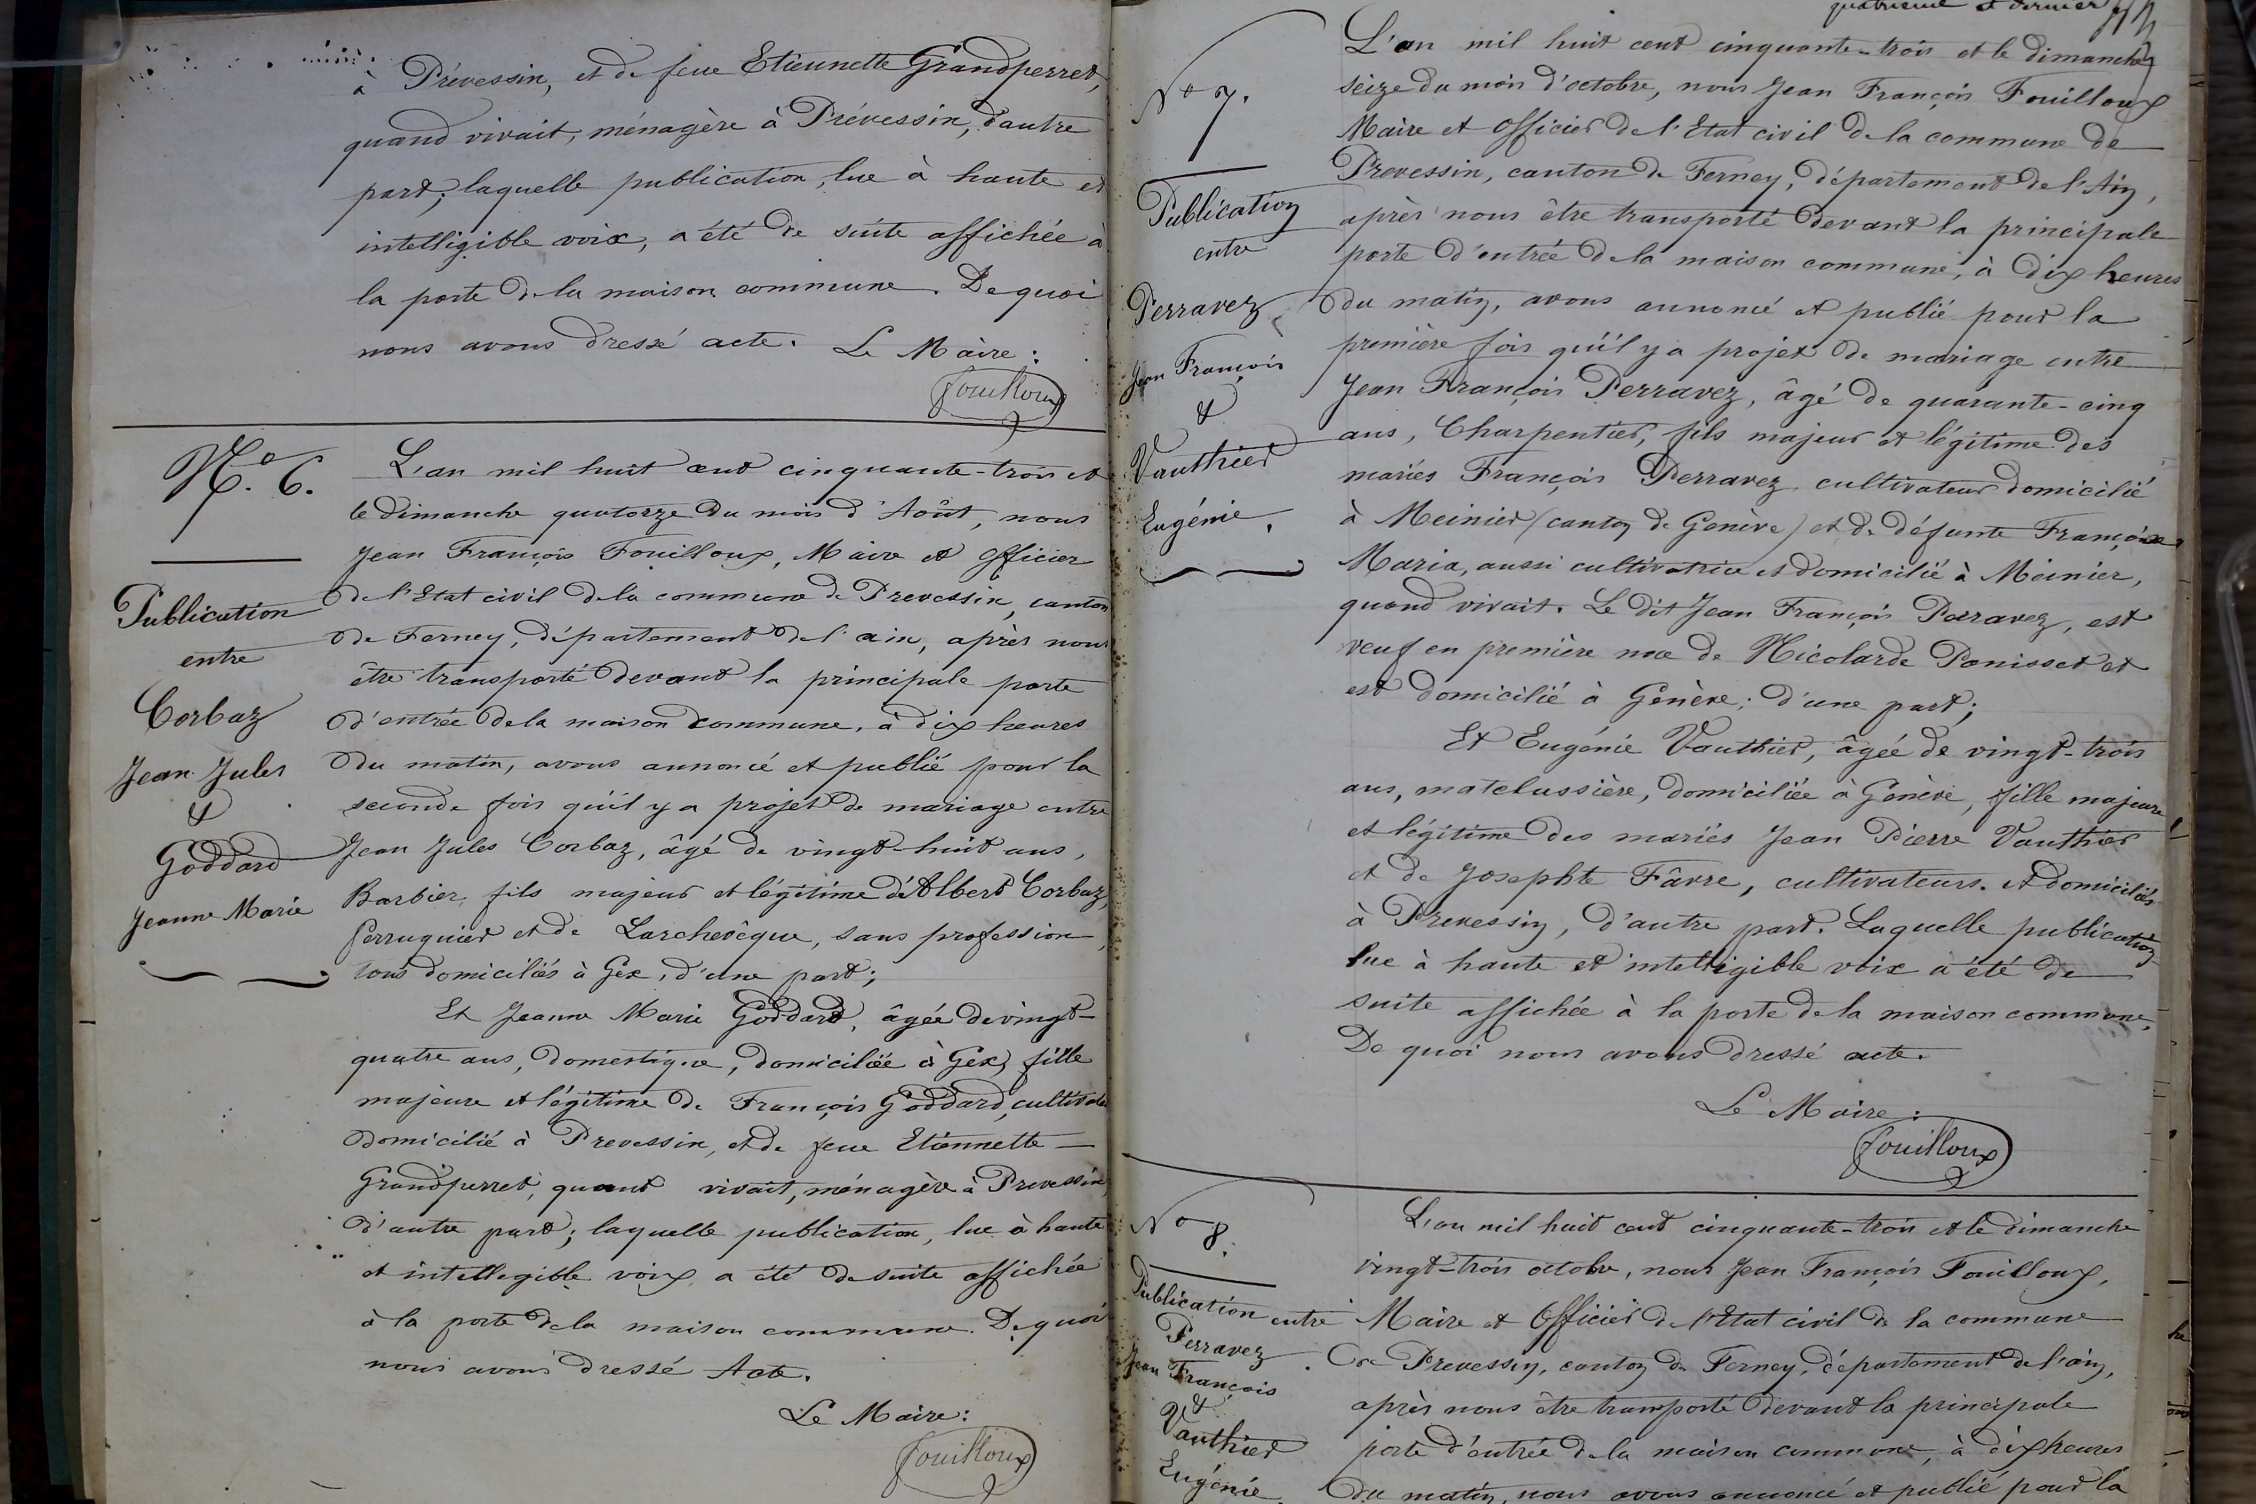 à Prévessin, et de feue Etiennette Grandperret,
quand vivait, ménagère à Prévessin, d'autre
part; laquelle publication, lue à haute et
intelligible voix, a été de suite affichée à
la porte de la maison commune. De quoi
nous avons dressé acte. Le Maire:
Fouilloux
N.º 6.
Publication
entre
Corbaz
Jean Jules
&
Goddard
Jeanne Marie
L'an mil huit cent cinquante-trois et
le dimanche quatorze du mois d'Août, nous
Jean François Fouilloux, Maire et officier
de l'Etat civil de la commune de Prevessin, canton
de Ferney, département de l'ain, après nous
être transporté devant la principale porte
d'entrée de la maison commune, à dix heures
du matin, avons annoncé et publié pour la
seconde fois qu'il y a projet de mariage entre
Jean Jules Corbaz, âgé de vingt-huit ans,
Barbier, fils majeur et légitime d'Albert Corbaz,
perruquier et de Larchevêque, sans profession,
tous domiciliés à Gex, d'une part;
Et Jeanne Marie Goddard, âgée de vingt-
quatre ans, domestique, domiciliée à Gex, fille
majeure et légitime de François Goddard, cultivateur
domicilié à Prevessin, et de feue Etiennette
Grandperret, quant vivait, ménagère à Prevessin,
d'autre part; laquelle publication, lue à haute
et intellegible voix a été de suite affichée
à la porte de la maison commune. De quoi
nous avons dressé Acte.
Le Maire:
Fouilloux
quatrième et dernier
Nº 7.
Publication
entre
Perravez
Jean François
&
Vauthier
Eugénie.
L'an mil huit cent cinquante-trois et le dimanche
seize du mois d'octobre, nous Jean François Fouilloux
Maire et officier de l'Etat civil de la commune de
Prevessin, canton de Ferney, département de l'Ain,
après nous être transporté devant la principale
porte d'entrée de la maison commune, à dix heures
du matin, avons annoncé et publié pour la
première fois qu'il y a projet de mariage entre
Jean François Perravez, âgé de quarante-cinq
ans, Charpentier, fils majeur et légitime des
mariés François Perravez cultivateur domicilié
à Meinier (canton de Genève) et de défunte Françoise
Maria, aussi cultivatrice et domicilié à Meinier,
quand vivait. Le dit Jean François Perravez, est
veuf en première noce de Nicolarde Panisset et
est domicilié à Genève; d'une part;
Et Eugénie Vauthier, âgée de vingt-trois
ans, matelussière, domiciliée à Genève, fille majeure
et légitime des mariés Jean Pierre Vauthier
et de Josephte Fâvre, cultivateurs et domiciliés
à Prevessin, d'autre part. Laquelle publication
lue à haute et intelligible voix a été de
suite affichée à la porte de la maison commune.
De quoi nous avons dressé acte.
Le Maire:
Fouilloux
Nº 8.
Publication entre
Perravez
Jean François
&
Vauthier
Eugénie
L'an mil huit cent cinquante-trois et le dimanche
vingt-trois octobre, nous Jean François Fouilloux,
Maire et Officier de l'Etat civil de la commune
de Prevessin, canton de Ferney, département de l'ain,
après nous être transporté devant la principale
porte d'entrée de la maison commune, à dix heures
du matin, nous avons annoncé et publié pour la